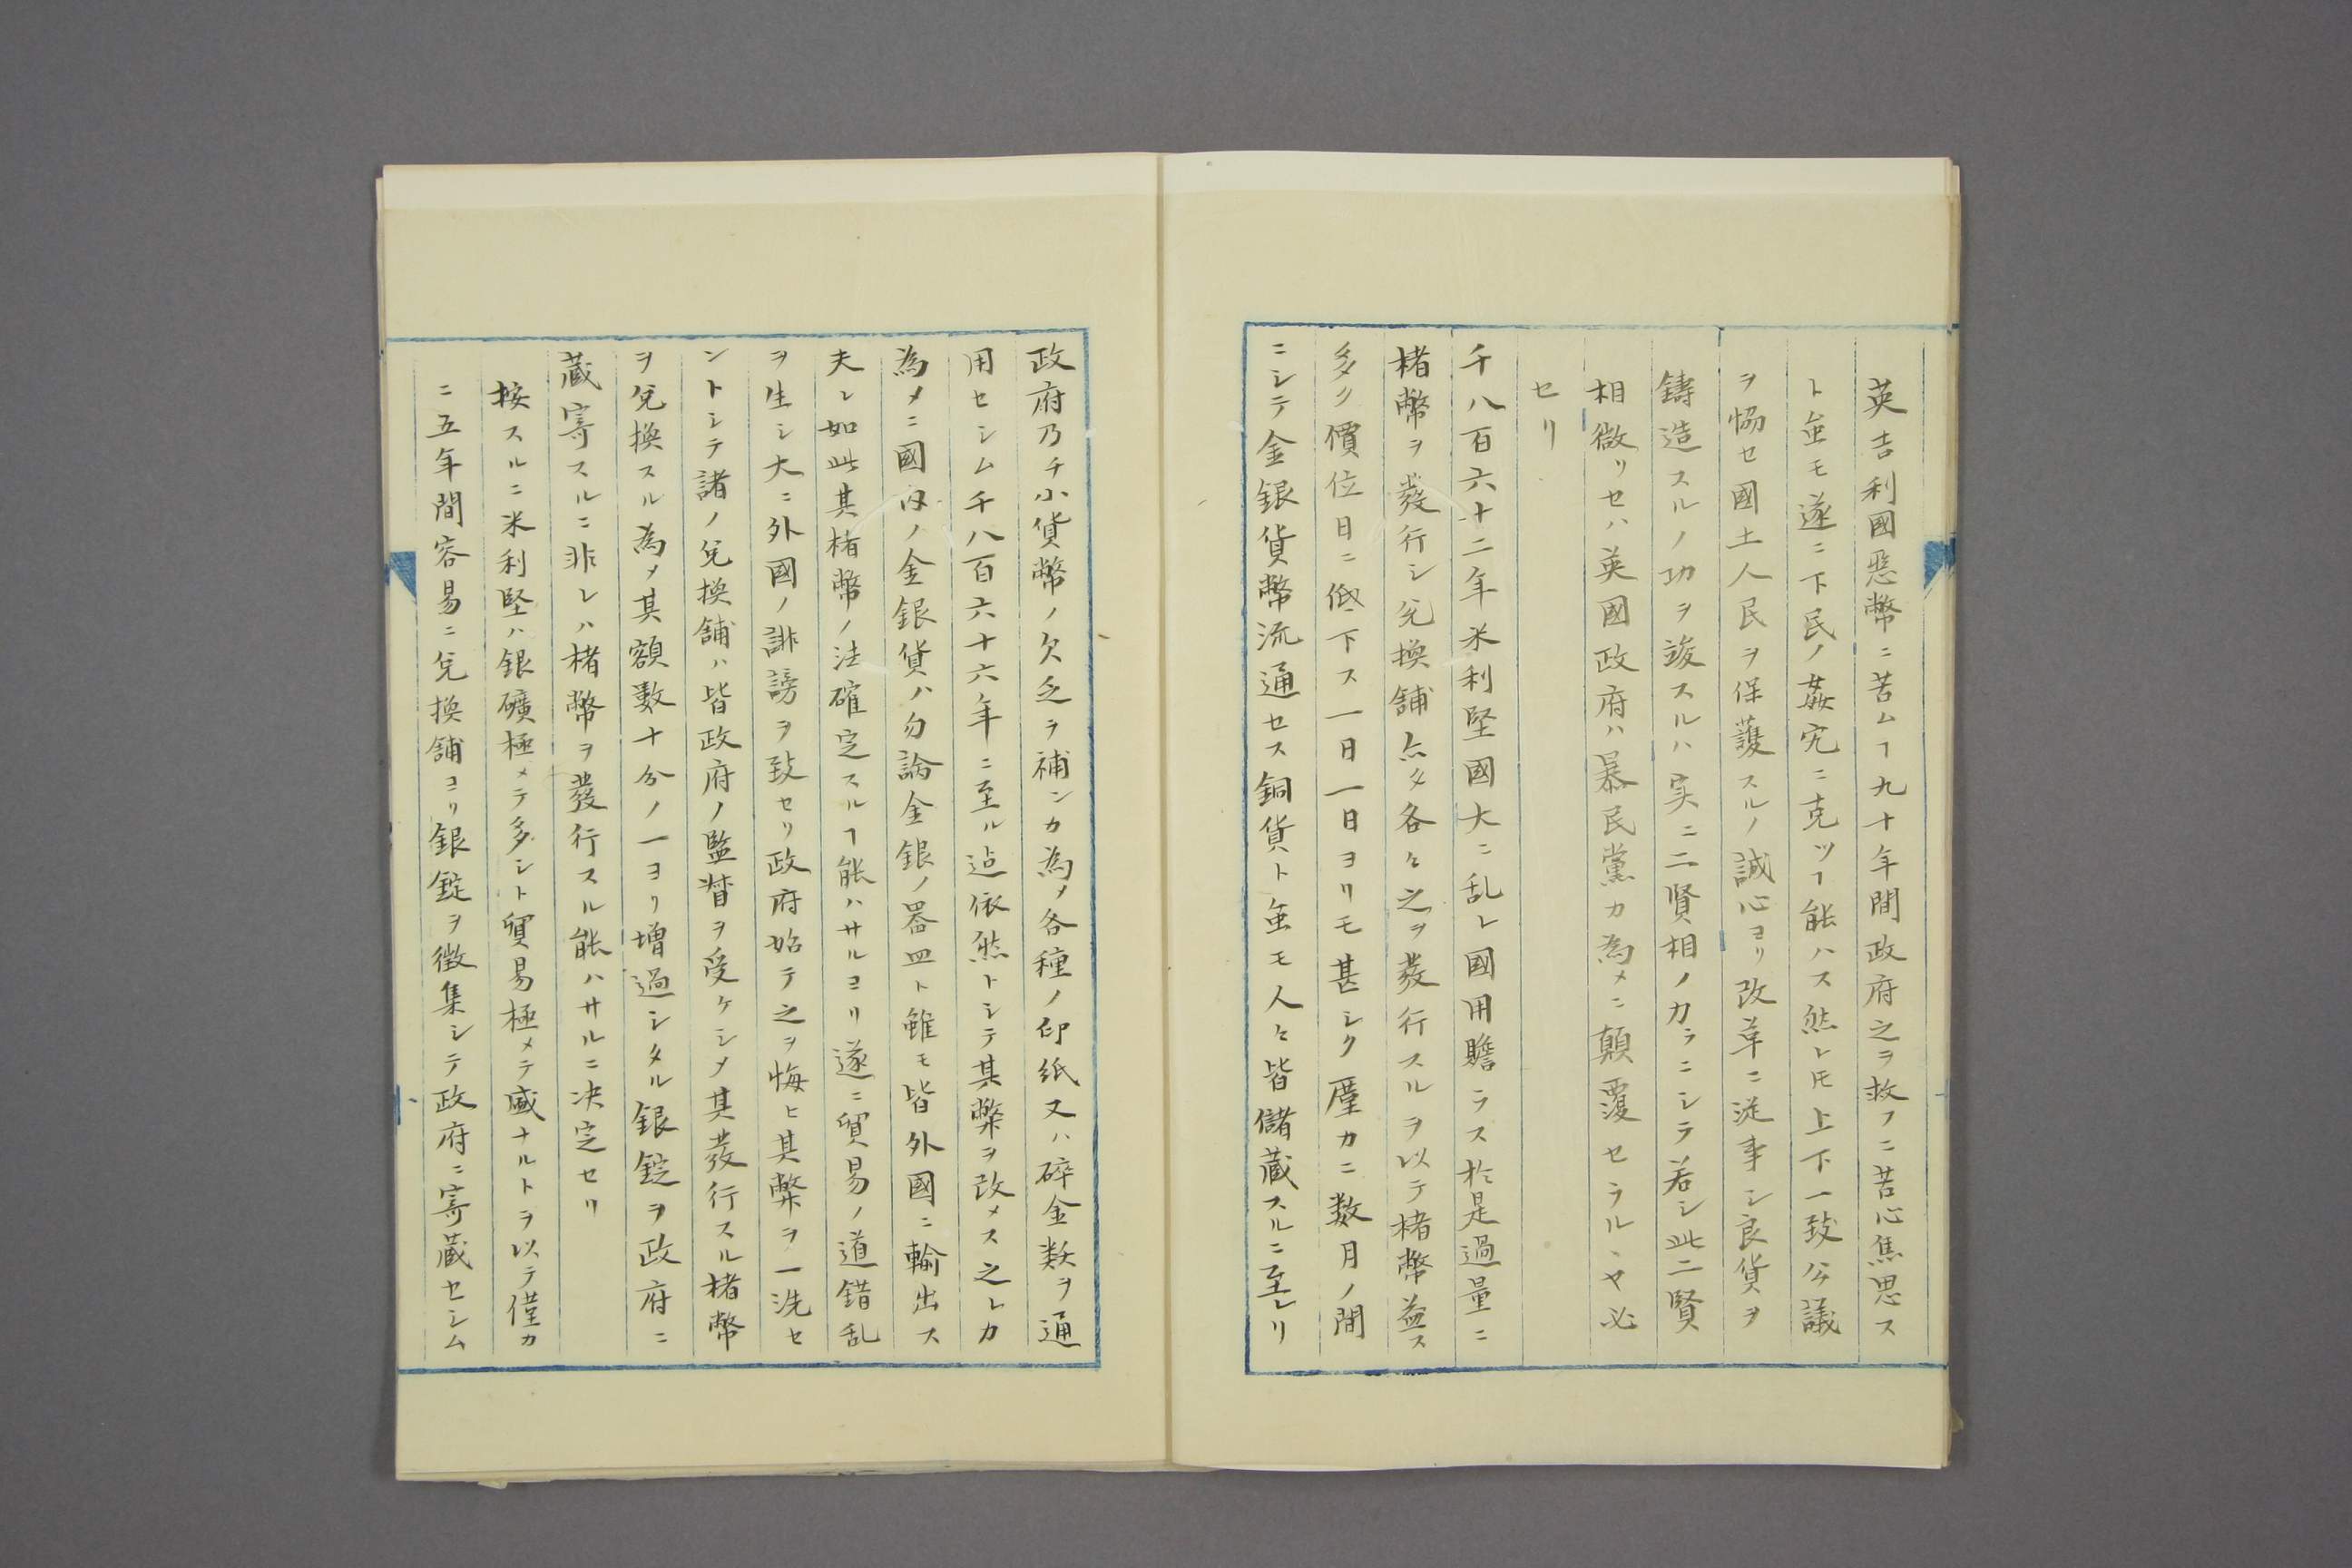 英吉利國惡幣ニ苦ムヿ九十年間政府之ヲ救フニ苦心焦思ス
ト虽モ遂ニ下民ノ姦宄ニ克ツヿ能ハス然レ𪜈上下一致公議
ヲ恊セ國土人民ヲ保護スルノ誠心ヨリ改革ニ従事シ良貨ヲ
鋳造スルノ功ヲ竣スルハ実ニ二賢相ノカラニシラ若シ此二賢
相微リセハ英國政府ハ暴民黨カ為メニ顛覆セラルヽヤ必
セリ
千八百六十二年米利堅國大ニ乱レ國用贍ラス於是過量ニ
楮幣ヲ發行シ兌換舗亦タ各々之ヲ發行スルヲ以テ楮幣益ス
多ク價位日ニ低下ス一日一日ヨリモ甚シク厪カニ数月ノ間
ニシテ金銀貨幣流通セス銅貨ト虽モ人々皆儲蔵スルニ至レリ
政府乃チ小貨幣ノ欠乏ヲ補ンカ為メ各種ノ印紙又ハ碎金数ヲ通
用セシム千八百六十六年ニ至ル迠依然トシテ其弊ヲ改メス之レカ
為メニ國内ノ金銀貨ハ勿論金銀ノ器皿ト雖モ皆外國ニ輸出ス
夫レ如此其楮幣ノ法確定スルヿ能ハサルヨリ遂ニ貿易ノ道錯乱
ヲ生シ大ニ外國ノ誹謗ヲ致セリ政府始テ之ヲ悔ヒ其弊ヲ一洗セ
ントシテ諸ノ兌換舗ハ皆政府ノ監督ヲ受ケシメ其發行スル楮幣
ヲ兌換スル為メ其額數十分ノ一ヨリ増過シタル銀錠ヲ政府ニ
蔵寄スルニ非レハ楮幣ヲ發行スル能ハサルニ决定セリ
按スルニ米利堅ハ銀礦極メテ多シト貿易極メテ盛ナルトヲ以テ僅カ
ニ五年間容易ニ兌換舗ヨリ銀錠ヲ徴集シテ政府ニ寄蔵セシム